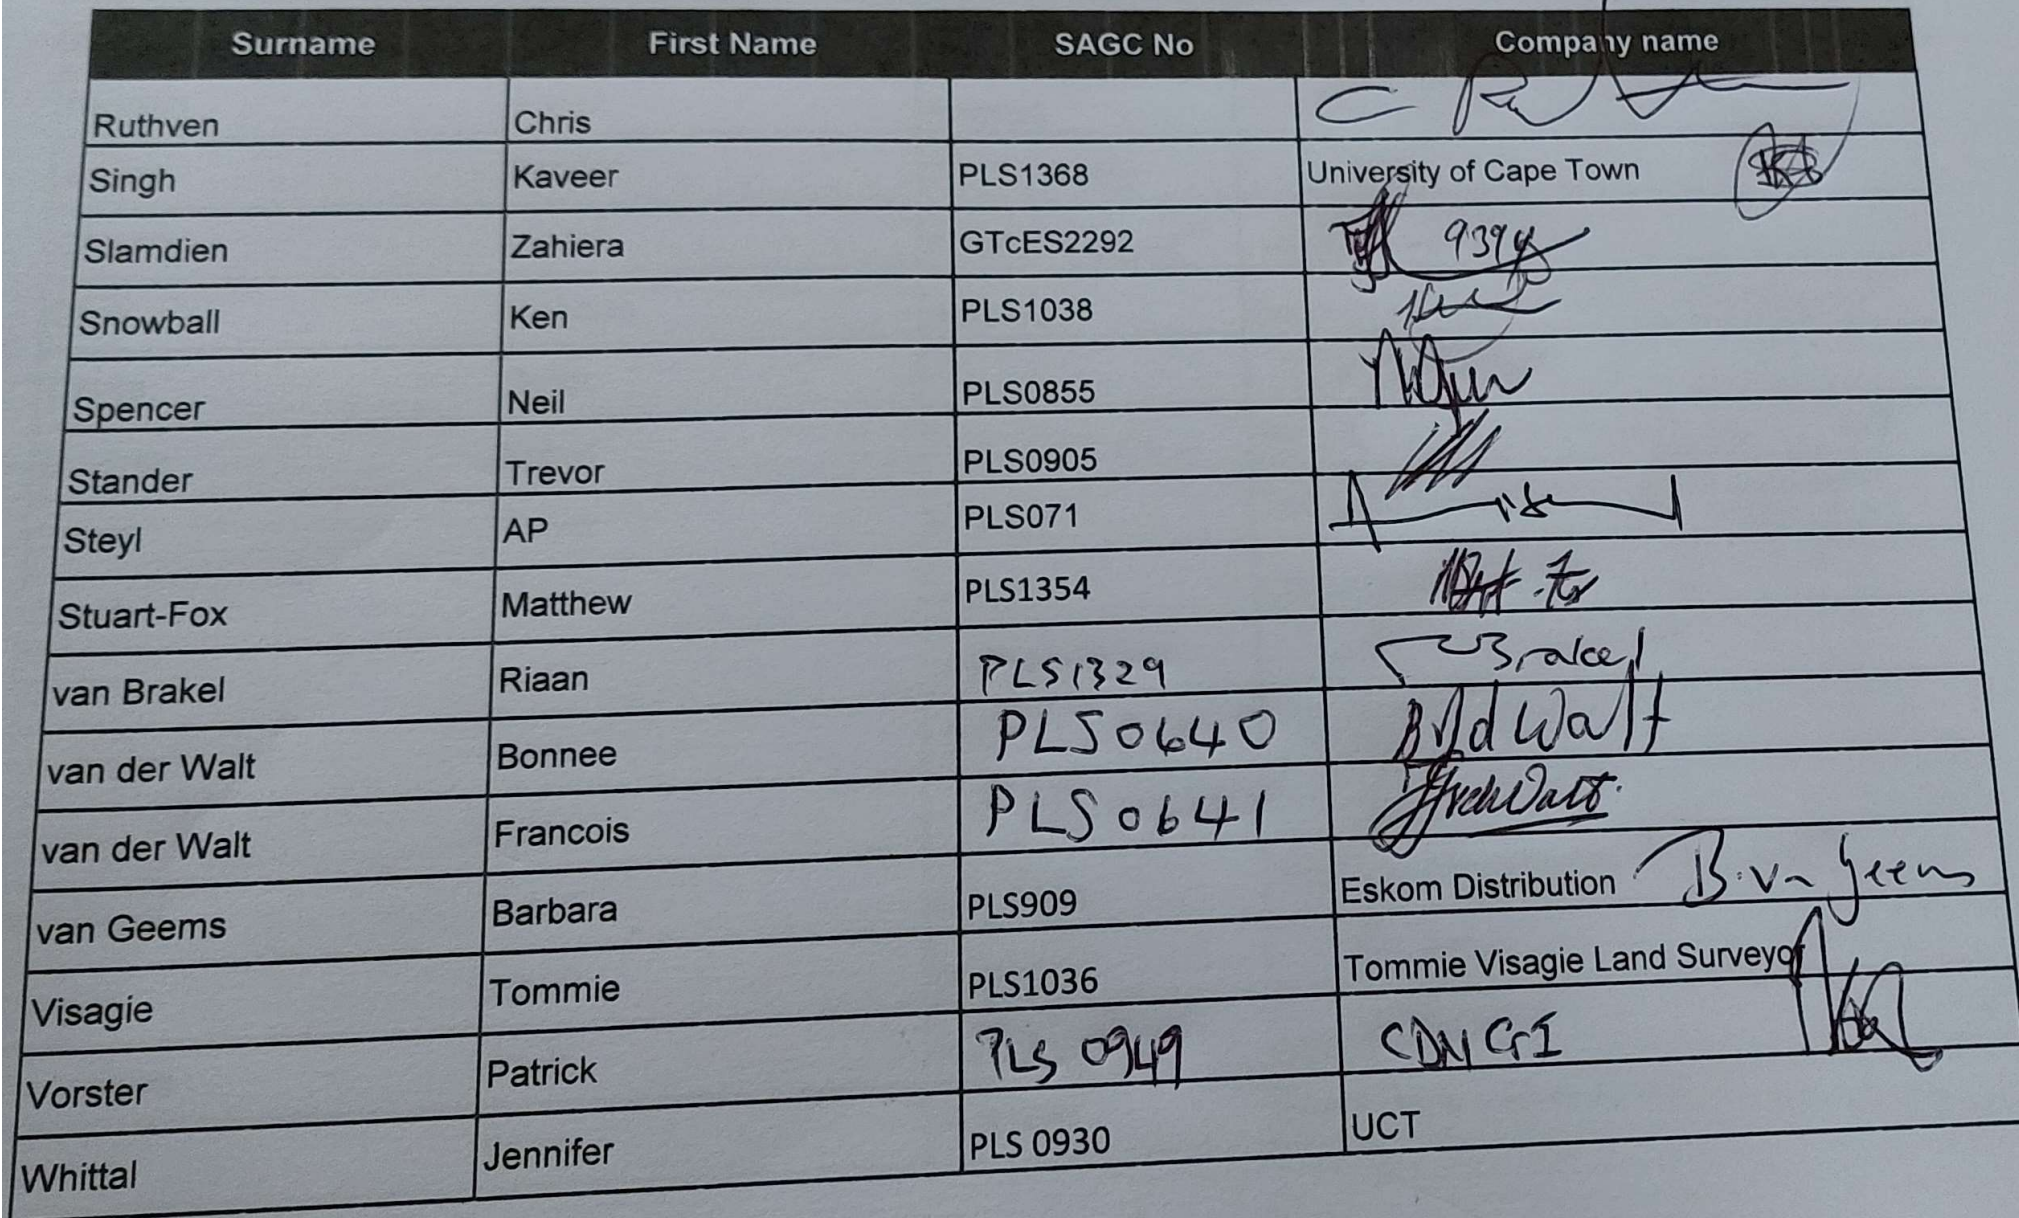 Surname First Name SAGC No Company name
Ruthven Chris
Singh Kaveer PLS1368 University of Cape Town
Slamdien Zahiera GTcES2292
Snowball Ken PLS1038
Spencer Neil PLS0855
Stander Trevor PLS0905
Steyl AP PLS071
Stuart-Fox Matthew PLS1354
van Brakel Riaan PLS1329 Brakel
van der Walt Bonnee PLS0640 BvdWalt
van der Walt Francois PLS0641
van Geems Barbara PLS909 Eskom Distribution B. van Geems
Visagie Tommie PLS1036 Tommie Visagie Land Surveyor
Vorster Patrick PLS 0949 CDNGI
Whittal Jennifer PLS 0930 UCT